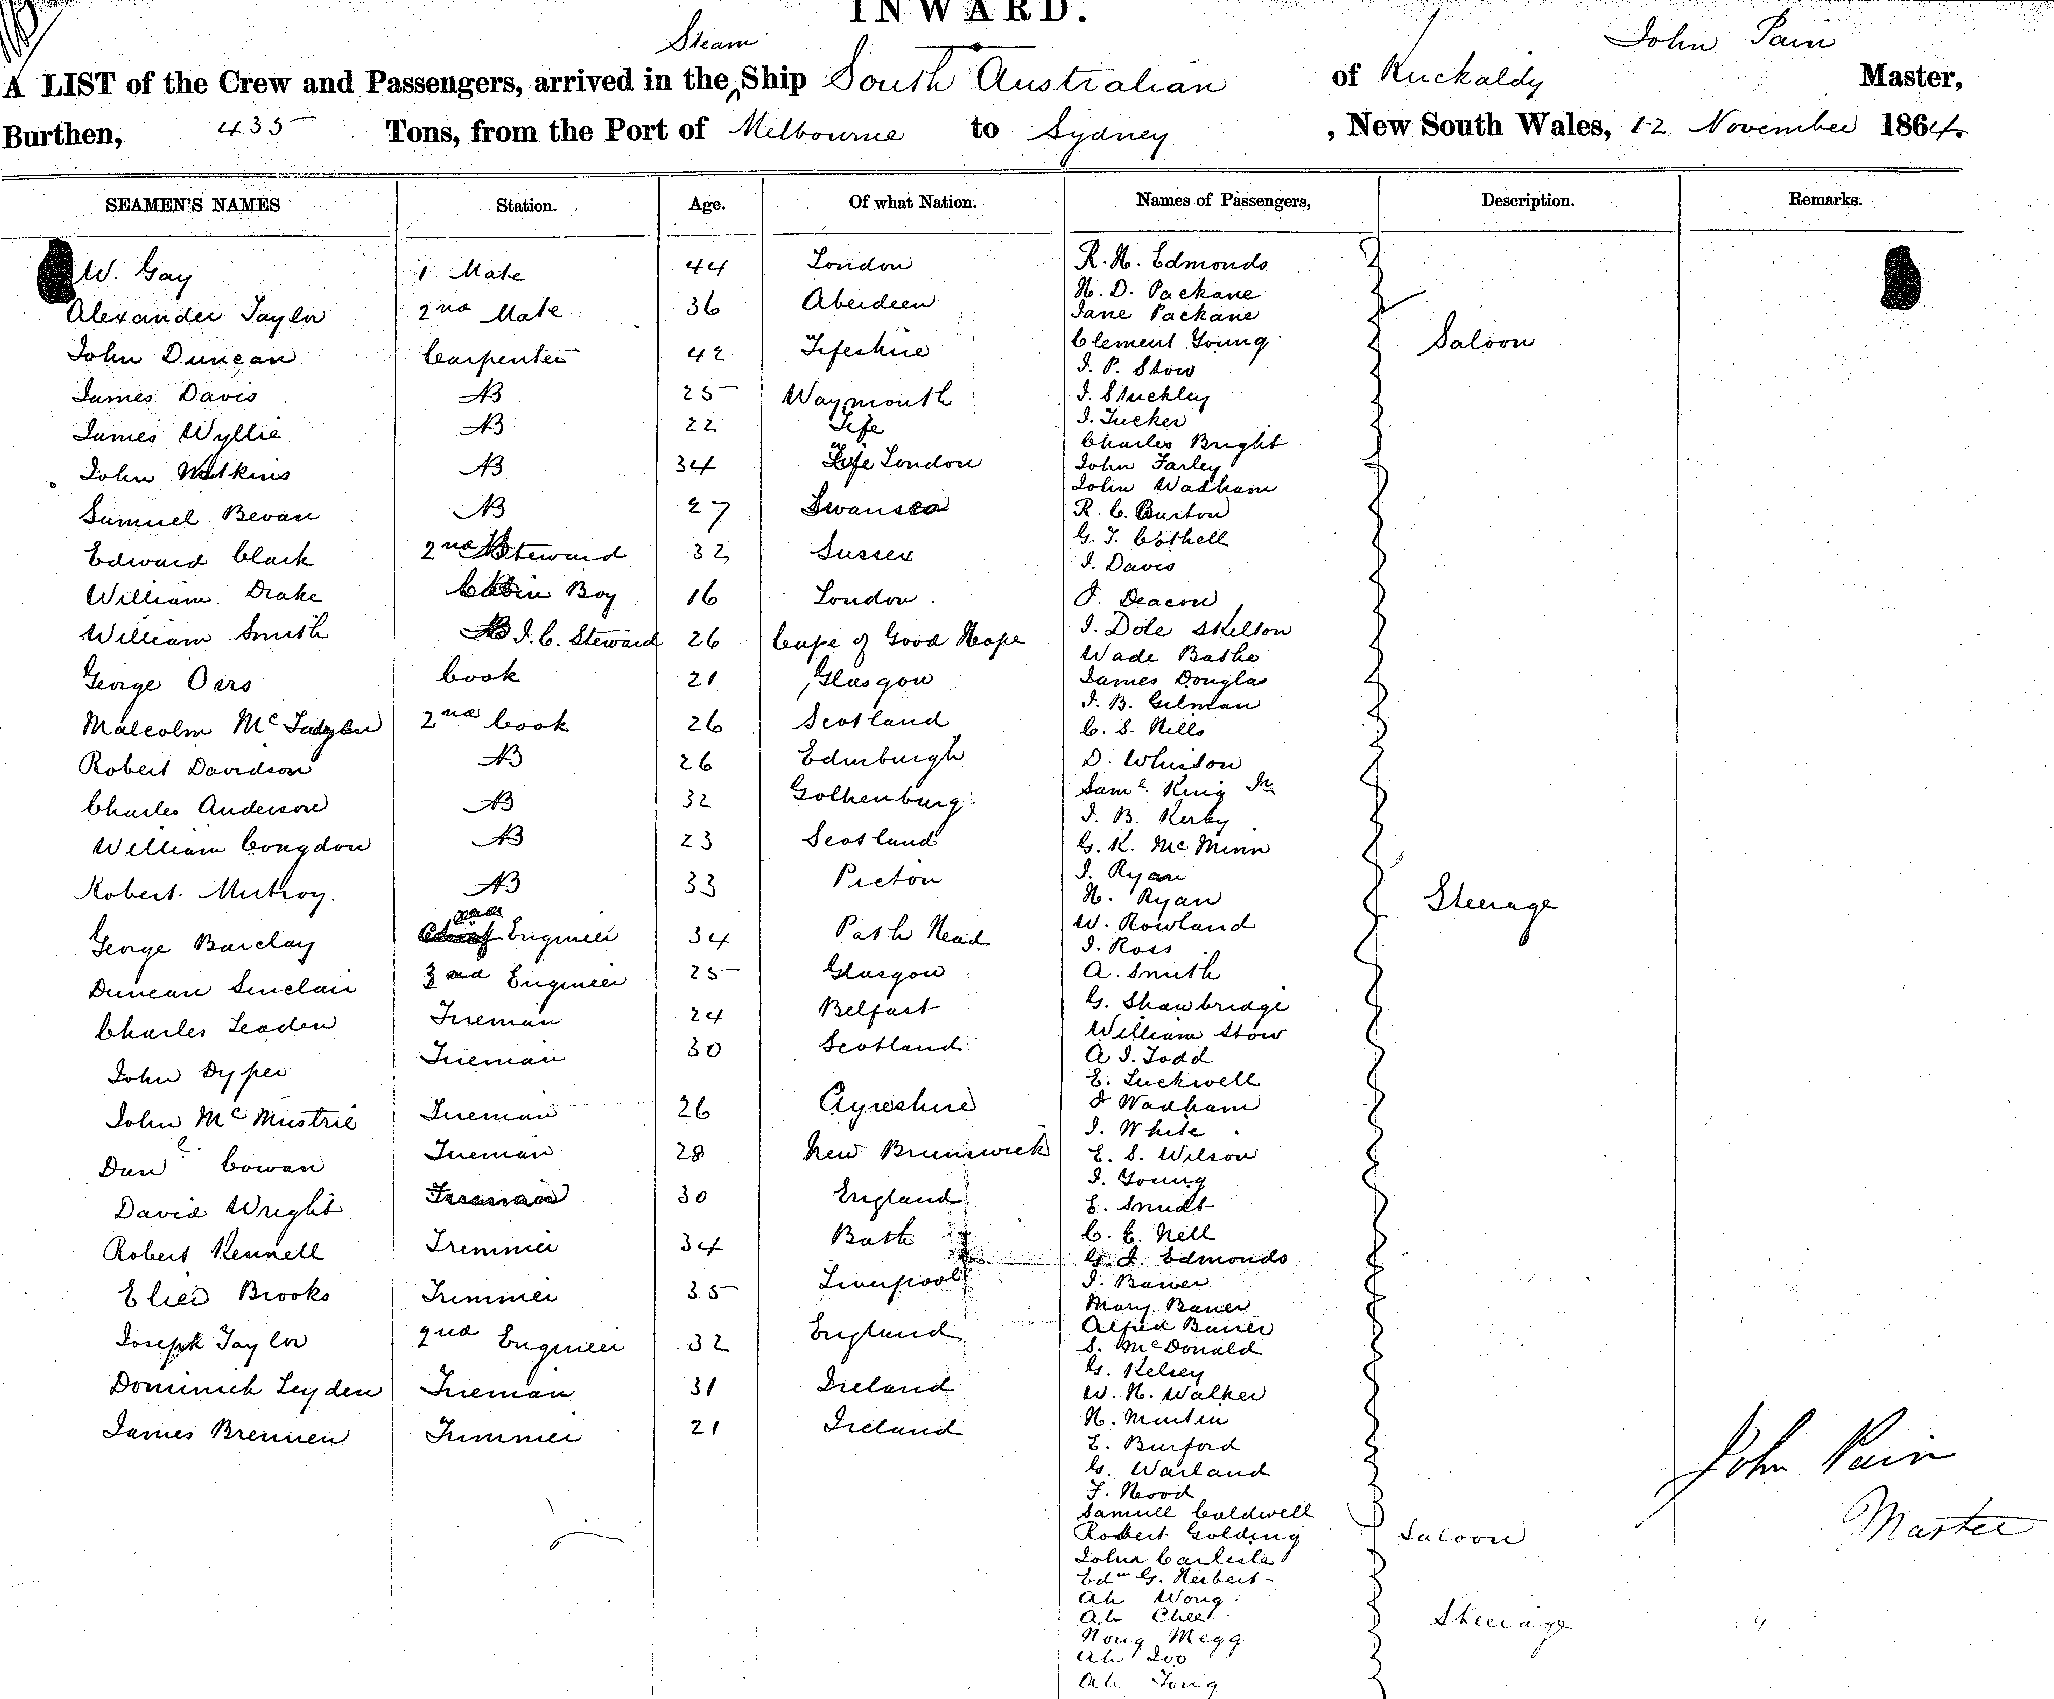 INWARD.
Steam
John Pain
A LIST of the Crew and Passengers, arrived in the Ship South Australian of Kuckaldy Master,
Burthen, 435 Tons, from the Port of Melbourne to Sydney , New South Wales, 12 November 1864.
SEAMEN'S NAMES Station. Age. Of what Nation. Names of Passengers, Description. Remarks.
W. Gay 1 Mate 44 London
Alexander Taylor 2nd Mate 36 Aberdeen
John Duncan Carpenter 42 Fifeshire
James Davis AB 25 Waymouth
James Wyllie AB 22 Fife
John Watkins AB 34 London
Samuel Bevan AB 27 Swansea
Edward Clark 2nd Steward 32 Sussex
William Drake Cabin Boy 16 London
William Smith F.C. Steward 26 Cape of Good Hope
George Oars Cook 21 Glasgow
Malcolm Mc 2nd Cook 26 Scotland
Robert Davidson AB 26 Edinburgh
Charles Anderson AB 32 Gothenburg
William Congdon AB 23 Scotland
Robert Mutroy. AB 33 Picton
George Barclay Engineer 34 Path Head
Duncan Sinclair 3rd Engineer 25 Glasgow
Charles Leaden Fireman 24 Belfast
John Dyper Fireman 30 Scotland
John McMustrie Fireman 26 Ayreshire
Danl Cowan Fireman 28 New Brunswick
David Wright Fireman 30 England
Robert Kennell Tremmer 34 Bath
Brooks Trimmer 35 Liverpool
Joseph Taylor 2nd Engineer 32 England
Dominick Leyden Fireman 31 Ireland
James Brennen Trimmer 21 Ireland
R. H. Edmonds
H. D. Packane
Jane Packane
Clement Young
Saloon
J. P. Stow
J. Stuckley
J. Tucker
Charles Bright
John Farley
John Wadham
R. C. Burton
G. T. Cothell
J. Davis
J. Deacon
J. Dole Skelton
Wade Bathe
James Douglas
J. B. Gilman
C. S. Hills
D. Whinton
Saml. King Jr
J. B. Kerby
G. K. McMinn
J. Ryan
H. Ryan
Steerage
W. Rowland
J. Ross
A. Smith
G. Shawbridge
William Stow
A J. Todd
E. Luckwell
J Wadham
J. White
E. S. Wilson
J. Young
E. Smidt
C. C. Nell
G. J. Edmonds
J. Bauer
Mary Bauer
Alfred Bauer
S. McDonald
G. Kelsey
W. H. Walker
H. Martin
E. Burford
G. Warland
F. Hood
Samuel Caldwell
Robert Golding
Saloon
John Carlisle
Edm G. Herbert
Ah Wong
Ah Chee
Steerage
Hong Megg
Ah Foo
Ah Fong
John Pain
Master